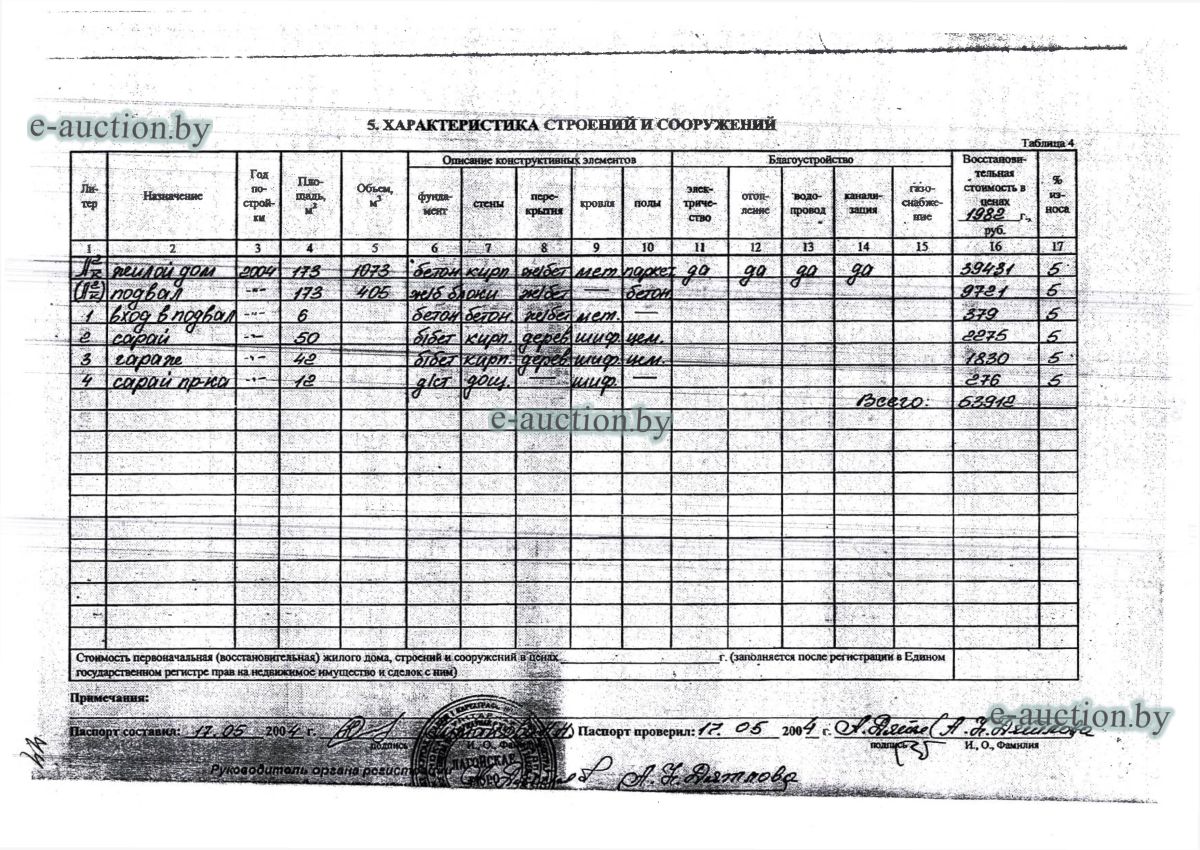 e-auction.by
5. ХАРАКТЕРИСТИКА СТРОЕНИЙ И СООРУЖЕНИЙ
Таблица 4
Ли- тер | Назначение | Год по- строй- ки | Пло- щадь, м² | Объем, м³ | Описание конструктивных элементов | Благоустройство | Восстанови- тельная стоимость в ценах 1982 г., руб. | % из- носа
фунда- мент | стены | пере- крытия | кровля | полы | элек- триче- ство | отоп- ление | водо- провод | канали- зация | газо- снабже- ние
1 2 3 4 5 6 7 8 9 10 11 12 13 14 15 16 17
жилой дом 2004 173 1073 бетон кирп. ж/бет мет. паркет да да да да 39431 5
подвал -"- 173 405 ж/б блоки ж/бет — бетон 9721 5
1 вход в подвал -"- 6 бетон бетон. ж/бет мет. — 379 5
2 сарай -"- 50 б/бет кирп. дерев шиф. цем. 2275 5
3 гараж -"- 42 б/бет кирп. дерев шиф. цем. 1830 5
4 сарай пр-ка -"- 12 д/ст дощ. — шиф. — 276 5
Всего: 53912
e-auction.by
Стоимость первоначальная (восстановительная) жилого дома, строений и сооружений в ценах г. (заполняется после регистрации в Едином
государственном регистре прав на недвижимое имущество и сделок с ним)
Примечания:
e-auction.by
Паспорт составил: 17.05 2004 г. Паспорт проверил: 17.05 2004 г.
подпись И., О., Фамилия подпись И., О., Фамилия
Руководитель органа А. Дятлова